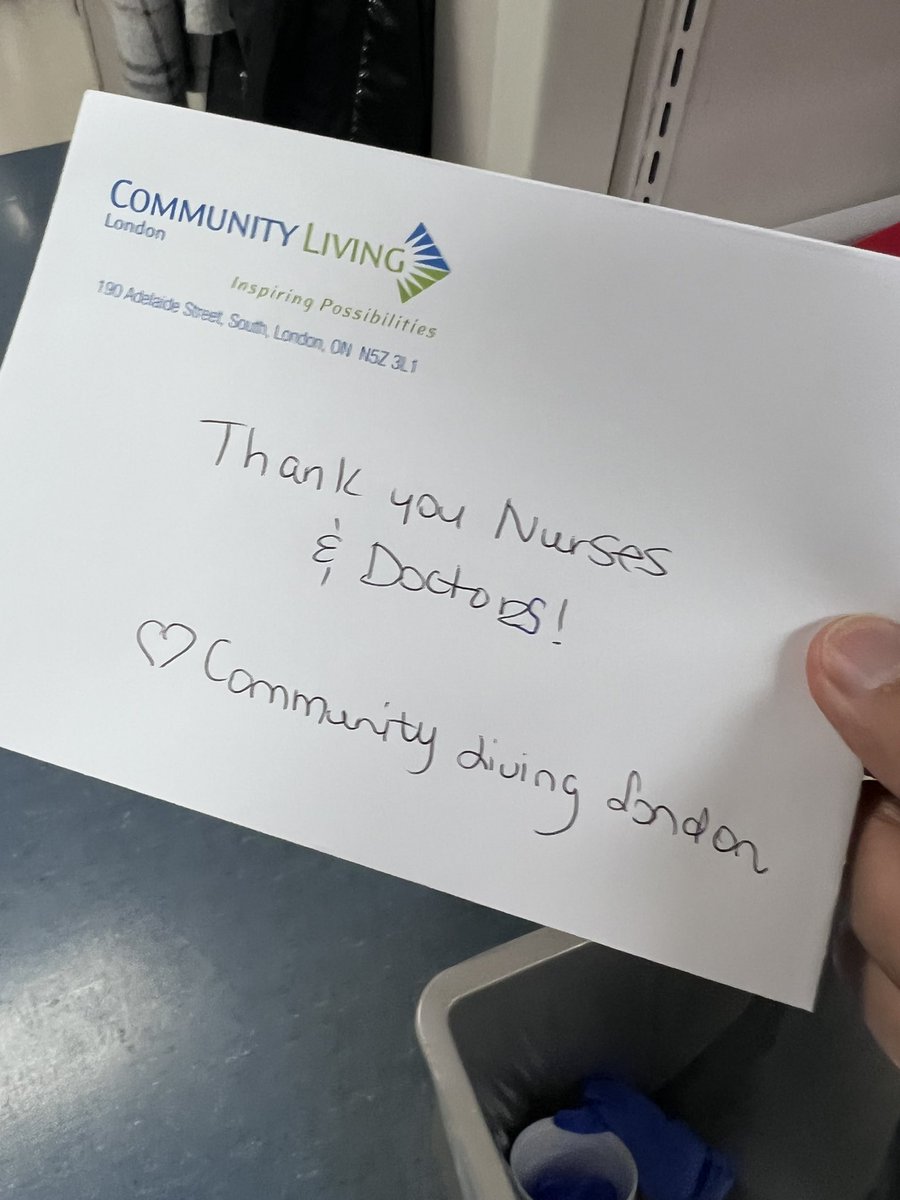 COMMUNITY LIVING
London
Inspiring Possibilities
190 Adelaide Street, South, London, ON N5Z 3L1
Thank you Nurses
& Doctors!
♡ Community Living London